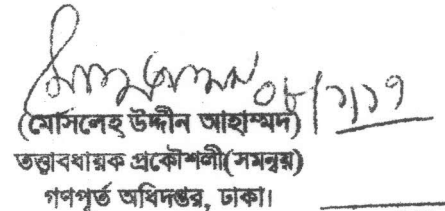 ০৮/১/১৭
(মোসলেহ উদ্দীন আহাম্মদ)
তত্ত্বাবধায়ক প্রকৌশলী(সমন্বয়)
গণপূর্ত অধিদপ্তর, ঢাকা।